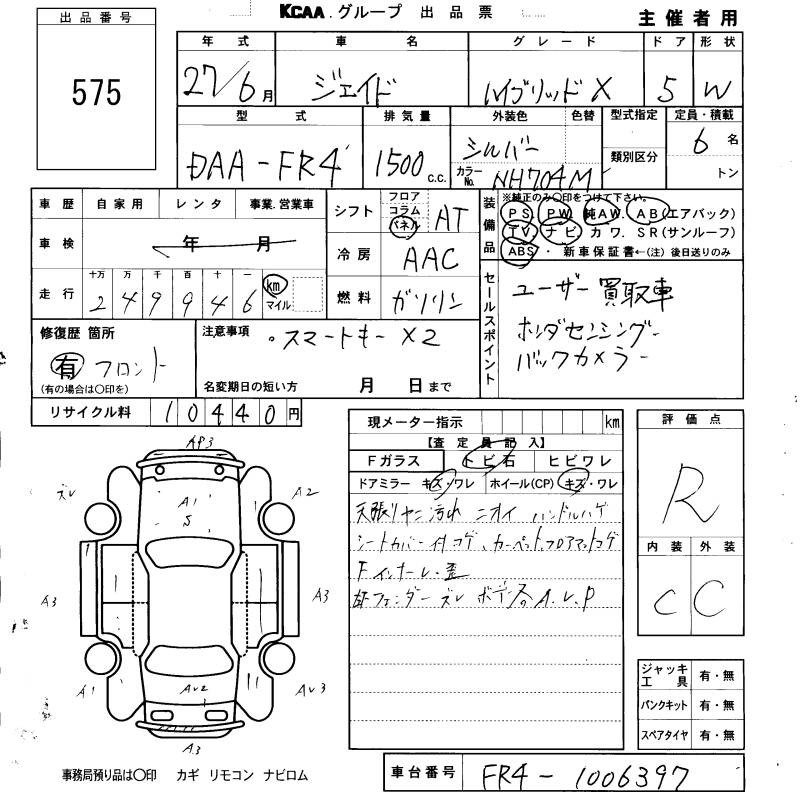 KCAA.グループ 出品票
主催者用
出品番号
575
年式 車名 グレード ドア 形状
27/6月 ジェイド ハイブリッドX 5 W
型式 排気量 外装色 色替 型式指定 定員・積載
DAA-FR4 1500c.c. シルバー 類別区分 6名
カラーNo. NH704M トン
車歴 自家用 レンタ 事業.営業車
シフト フロア コラム パネル AT
装備品 ※純正のみ〇印をつけて下さい。
PS PW 純AW. AB(エアバック)
TV ナビ カワ. SR(サンルーフ)
ABS・ 新車保証書←(注) 後日送りのみ
車検 年 月
冷房 AAC
走行 十万 万 千 百 十 一
249946 km マイル
燃料 ガソリン
セールスポイント
ユーザー買取車
ホンダセンシング
バックカメラー
修復歴 箇所
有 フロント
(有の場合は〇印を)
注意事項
・スマートキーX2
名変期日の短い方 月 日まで
リサイクル料 10440円
現メーター指示 km
【査定員記入】
Fガラス トビ石 ヒビワレ
ドアミラー キズ・ワレ ホイール(CP) キズ・ワレ
天張リヤニ汚れ ニオイ ハンドルハゲ
シートカバー付コゲ、カーペット、フロアマットコゲ
Fインナーレ・歪
フェンダーズレ ボデー A.U.P
評価点
R
内装 外装
C C
AP3
ズレ A1 S A2
A3 A3
A1 AU2 AU3
A3
ジャッキ工具 有・無
パンクキット 有・無
スペアタイヤ 有・無
事務局預り品は〇印 カギ リモコン ナビロム
車台番号 FR4-1006397